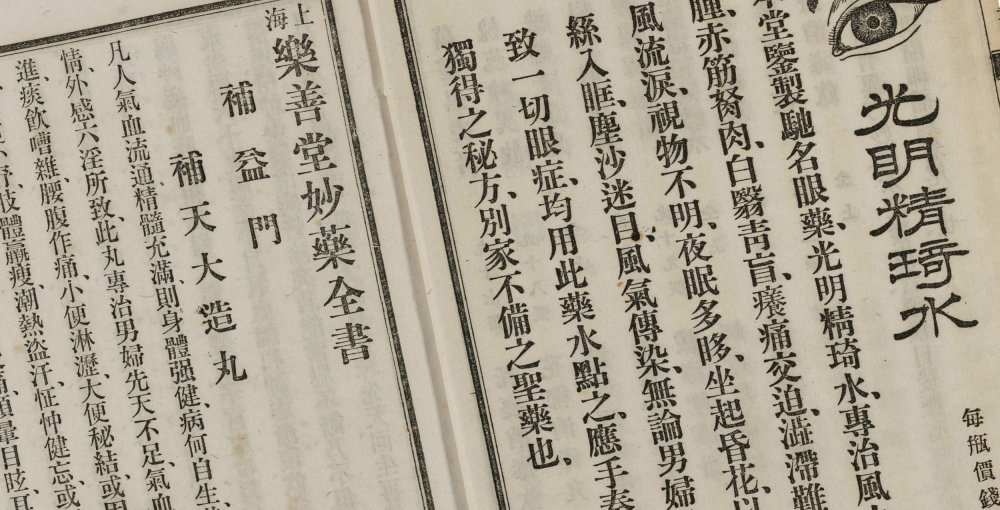 光明精琦水
每瓶價錢
本堂鑒製馳名眼藥、光明精琦水、專治風
腫、赤筋努肉、白翳靑盲、癢痛交迫、澁滯難
風流淚、視物不明、夜眠多眵、坐起昏花、以
風氣傳染、無論男婦
絲入眶、塵沙迷目、
致一切眼症、均用此藥水點之、應手奏
獨得之秘方、別家不備之聖藥也、
上海樂善堂妙藥全書
補益門
補天大造丸
凡人氣血流通精髓充滿、則身體强健、病何自生、
情外感六淫所致、此丸專治男婦先天不足、氣血
進、痰飮嘈雜、腰腹作痛、小便淋瀝、大便秘結、或
肢體羸瘦、潮熱盜汗、怔忡健忘、或
頭暈目眩、耳